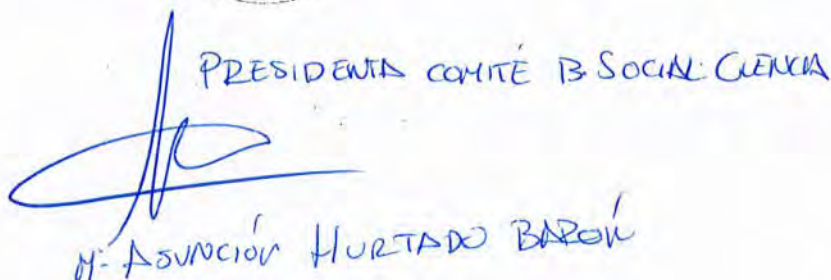 PRESIDENTA COMITÉ B. SOCIAL CUENCA
Mª ASUNCIÓN HURTADO BARÓN